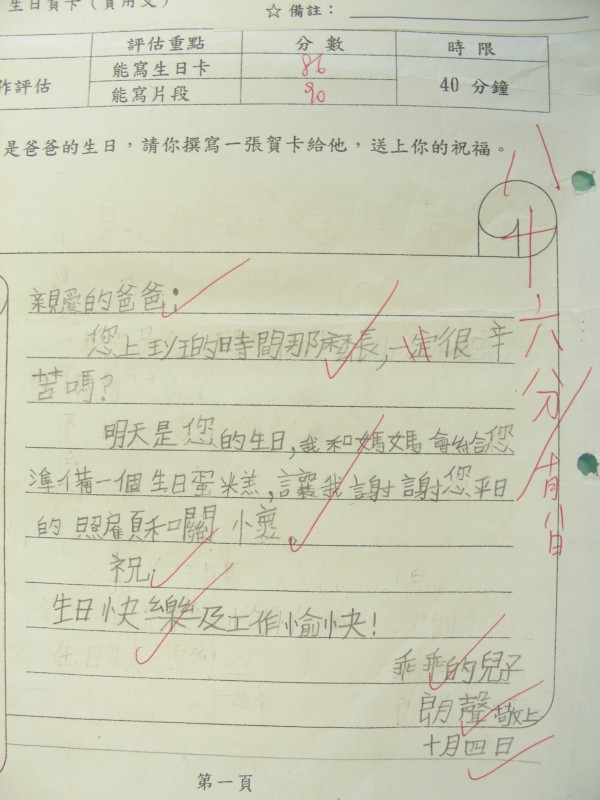 生日賀卡（實用文）
☆ 備註：
評估重點 分數 時限
作評估 能寫生日卡 86 40 分鐘
能寫片段 90
是爸爸的生日，請你撰寫一張賀卡給他，送上你的祝福。
八十六分
親愛的爸爸：
您上班的時間那麼長，一定很辛
苦嗎？
明天是您的生日，我和媽媽會給您
準備一個生日蛋糕，讓我謝謝您平日
的照雇和關小懷。
祝
生日快樂及工作愉快！
乖乖的兒子
朗聲敬上
十月四日
第一頁